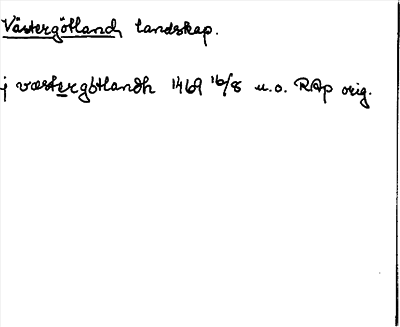 Västergötland, landskap.
j væstergötlandh 1469 16/8 u.o. RAp orig.